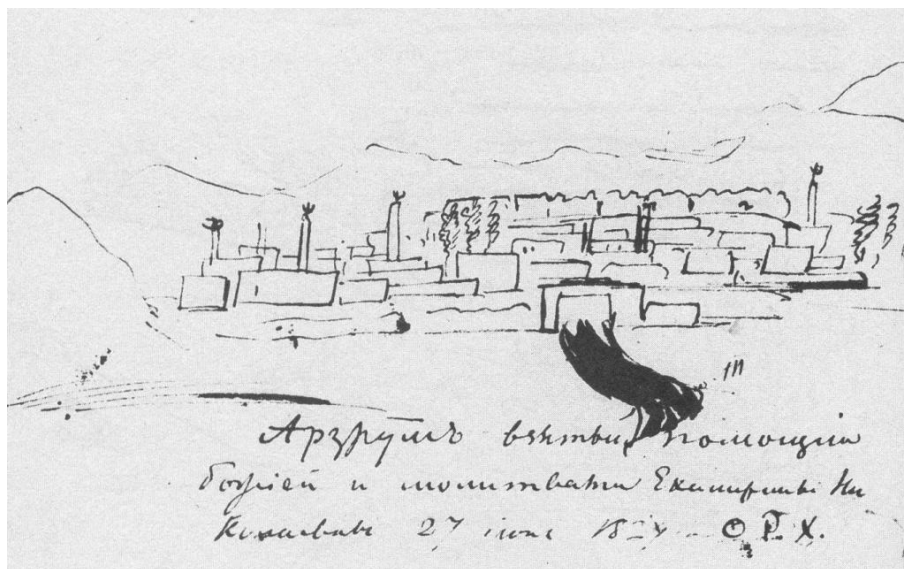 Арзрумъ взятый помощiю
Божiей и молитвами Екатерины Ни
колаевны 27 iюня Р. Х.